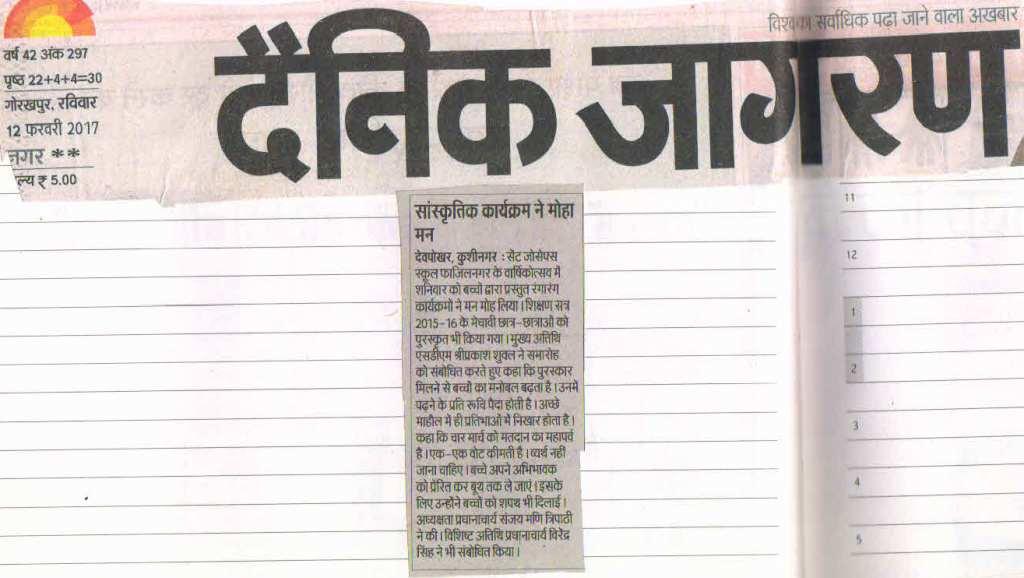 विश्व का सर्वाधिक पढ़ा जाने वाला अखबार
दैनिक जागरण
वर्ष 42 अंक 297
पृष्ठ 22+4+4=30
गोरखपुर, रविवार
12 फरवरी 2017
नगर **
ल्य ₹ 5.00
सांस्कृतिक कार्यक्रम ने मोहा
मन
देवपोखर, कुशीनगर : सेंट जोसेफ्स
स्कूल फाजिलनगर के वार्षिकोत्सव में
शनिवार को बच्चों द्वारा प्रस्तुत रंगारंग
कार्यक्रमों ने मन मोह लिया। शिक्षण सत्र
2015-16 के मेधावी छात्र-छात्राओं को
पुरस्कृत भी किया गया। मुख्य अतिथि
एसडीएम श्रीप्रकाश शुक्ल ने समारोह
को संबोधित करते हुए कहा कि पुरस्कार
मिलने से बच्चों का मनोबल बढ़ता है। उनमें
पढ़ने के प्रति रूचि पैदा होती है। अच्छे
माहौल में ही प्रतिभाओं में निखार होता है।
कहा कि चार मार्च को मतदान का महापर्व
है। एक-एक वोट कीमती है। व्यर्थ नहीं
जाना चाहिए। बच्चे अपने अभिभावक
को प्रेरित कर बूथ तक ले जाएं। इसके
लिए उन्होंने बच्चों को शपथ भी दिलाई।
अध्यक्षता प्रधानाचार्य संजय मणि त्रिपाठी
ने की। विशिष्ट अतिथि प्रधानाचार्य विरेंद्र
सिंह ने भी संबोधित किया।
11
12
1
2
3
4
5